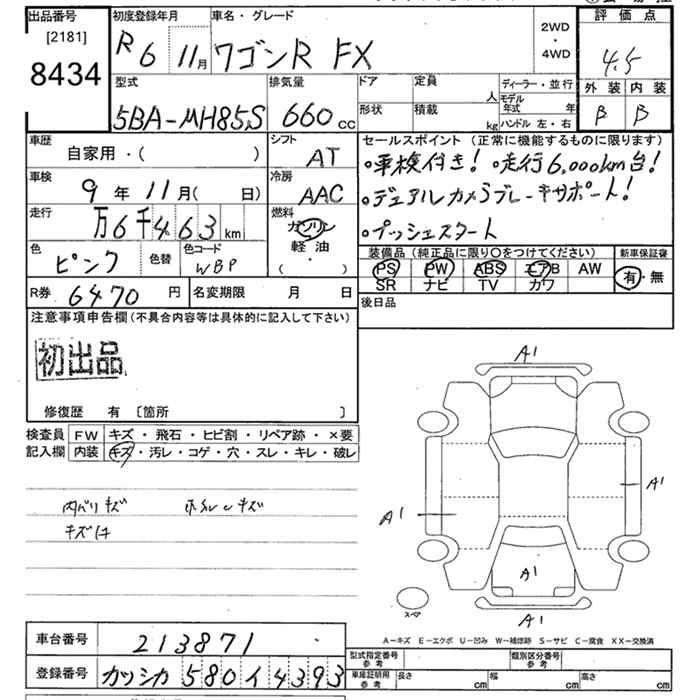 出品番号
[2181]
8434
初度登録年月
R6 11月
車名・グレード
ワゴンR FX
2WD
・
4WD
評価点
4.5
外装 内装
B B
型式
5BA-MH85S
排気量
660 cc
ドア
定員
人
形状
積載
kg
ディーラー・並行
モデル年式 年
ハンドル 左・右
車歴
自家用・( )
シフト
AT
車検
9年11月( 日)
冷房
AAC
走行
万6千463km
燃料
ガソリン
軽油
(・)
色
ピンク
色替
色コード
WBP
R券 6470円
名変期限 月 日
セールスポイント(正常に機能するものに限ります)
・車検付き! ・走行6,000km台!
・デュアルカメラブレーキサポート!
・プッシュスタート
装備品(純正品に限り○をつけてください)
PS PW ABS エアB AW
SR ナビ TV カワ
新車保証書
有・無
後日品
注意事項申告欄(不具合内容等は具体的に記入して下さい)
初出品
修復歴 有 〔箇所 〕
検査員記入欄
FW キズ・飛石・ヒビ割・リペア跡・×要
内装 キズ・汚レ・コゲ・穴・スレ・キレ・破レ
内バリキズ
キズ
A1
A1
A1
A1
A1
スペア
A-キズ E-エクボ U-凹み W-補修跡 S-サビ C-腐食 XX-交換済
車台番号 213871
登録番号 カツシカ 580 イ 4393
型式指定番号
参考
類別区分番号
参考
車庫証明用
参考
長さ cm
幅 cm
高さ cm